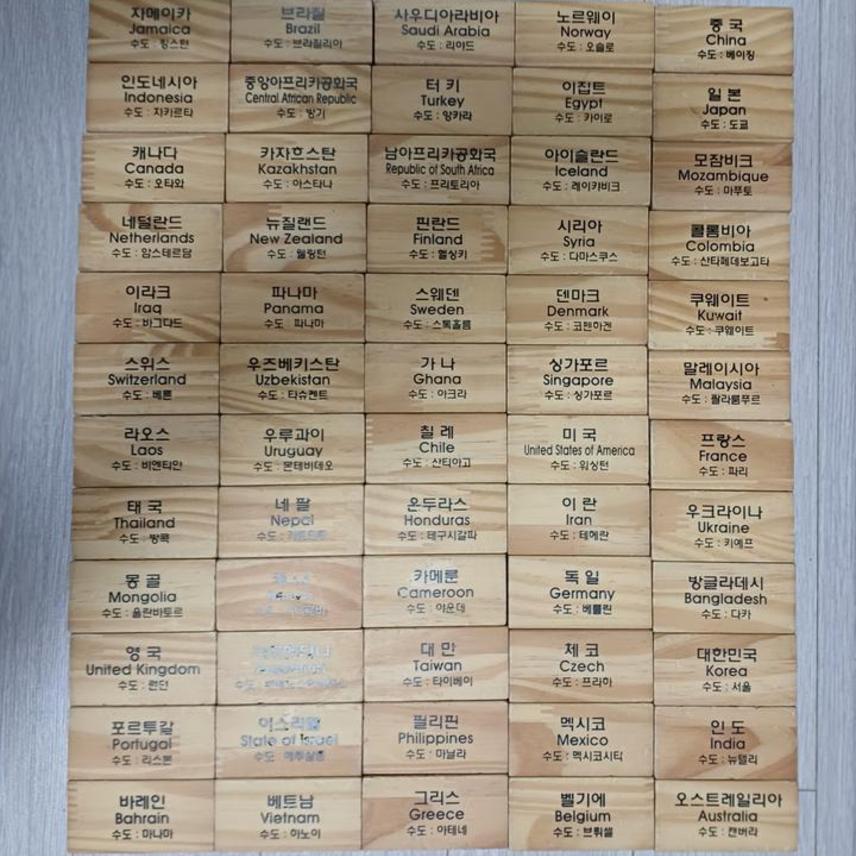 자메이카
Jamaica
수도 : 킹스턴
브라질
Brazil
수도 : 브라질리아
사우디아라비아
Saudi Arabia
수도 : 리야드
노르웨이
Norway
수도 : 오슬로
중 국
China
수도 : 베이징
인도네시아
Indonesia
수도 : 자카르타
중앙아프리카공화국
Central African Republic
수도 : 방기
터 키
Turkey
수도 : 앙카라
이집트
Egypt
수도 : 카이로
일 본
Japan
수도 : 도쿄
캐나다
Canada
수도 : 오타와
카자흐스탄
Kazakhstan
수도 : 아스타나
남아프리카공화국
Republic of South Africa
수도 : 프리토리아
아이슬란드
Iceland
수도 : 레이캬비크
모잠비크
Mozambique
수도 : 마푸토
네덜란드
Netherlands
수도 : 암스테르담
뉴질랜드
New Zealand
수도 : 웰링턴
핀란드
Finland
수도 : 헬싱키
시리아
Syria
수도 : 다마스쿠스
콜롬비아
Colombia
수도 : 산타페데보고타
이라크
Iraq
수도 : 바그다드
파나마
Panama
수도 : 파나마
스웨덴
Sweden
수도 : 스톡홀름
덴마크
Denmark
수도 : 코펜하겐
쿠웨이트
Kuwait
수도 : 쿠웨이트
스위스
Switzerland
수도 : 베른
우즈베키스탄
Uzbekistan
수도 : 타슈켄트
가 나
Ghana
수도 : 아크라
싱가포르
Singapore
수도 : 싱가포르
말레이시아
Malaysia
수도 : 콸라룸푸르
라오스
Laos
수도 : 비엔티안
우루과이
Uruguay
수도 : 몬테비데오
칠 레
Chile
수도 : 산티아고
미 국
United States of America
수도 : 워싱턴
프랑스
France
수도 : 파리
태 국
Thailand
수도 : 방콕
네 팔
Nepal
수도 : 카트만두
온두라스
Honduras
수도 : 테구시갈파
이 란
Iran
수도 : 테헤란
우크라이나
Ukraine
수도 : 키예프
몽 골
Mongolia
수도 : 울란바토르
카메룬
Cameroon
수도 : 야운데
독 일
Germany
수도 : 베를린
방글라데시
Bangladesh
수도 : 다카
영 국
United Kingdom
수도 : 런던
대 만
Taiwan
수도 : 타이베이
체 코
Czech
수도 : 프라하
대한민국
Korea
수도 : 서울
포르투갈
Portugal
수도 : 리스본
이스라엘
State of Israel
수도 : 예루살렘
필리핀
Philippines
수도 : 마닐라
멕시코
Mexico
수도 : 멕시코시티
인 도
India
수도 : 뉴델리
바레인
Bahrain
수도 : 마나마
베트남
Vietnam
수도 : 하노이
그리스
Greece
수도 : 아테네
벨기에
Belgium
수도 : 브뤼셀
오스트레일리아
Australia
수도 : 캔버라